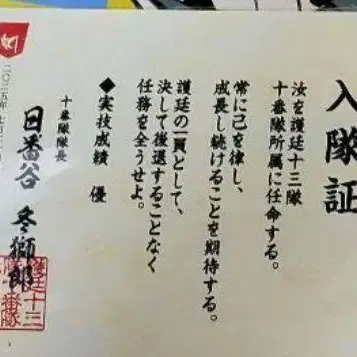 入隊証
汝を護廷十三隊
十番隊所属に任命する。
常に己を律し、
成長し続けることを期待する。
護廷の一員として、
決して後退することなく
任務を全うせよ。
◆実技成績 優
十番隊隊長
日番谷 冬獅郎
護廷十三
隊十番隊
二〇二五年